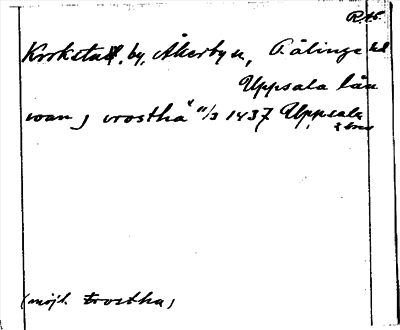 RA
Kroksta, by, Åkerby sn, Bälinge hd
Uppsala län
woan j vrostha" 11/3 1437 Uppsala
(möjl. trostha)